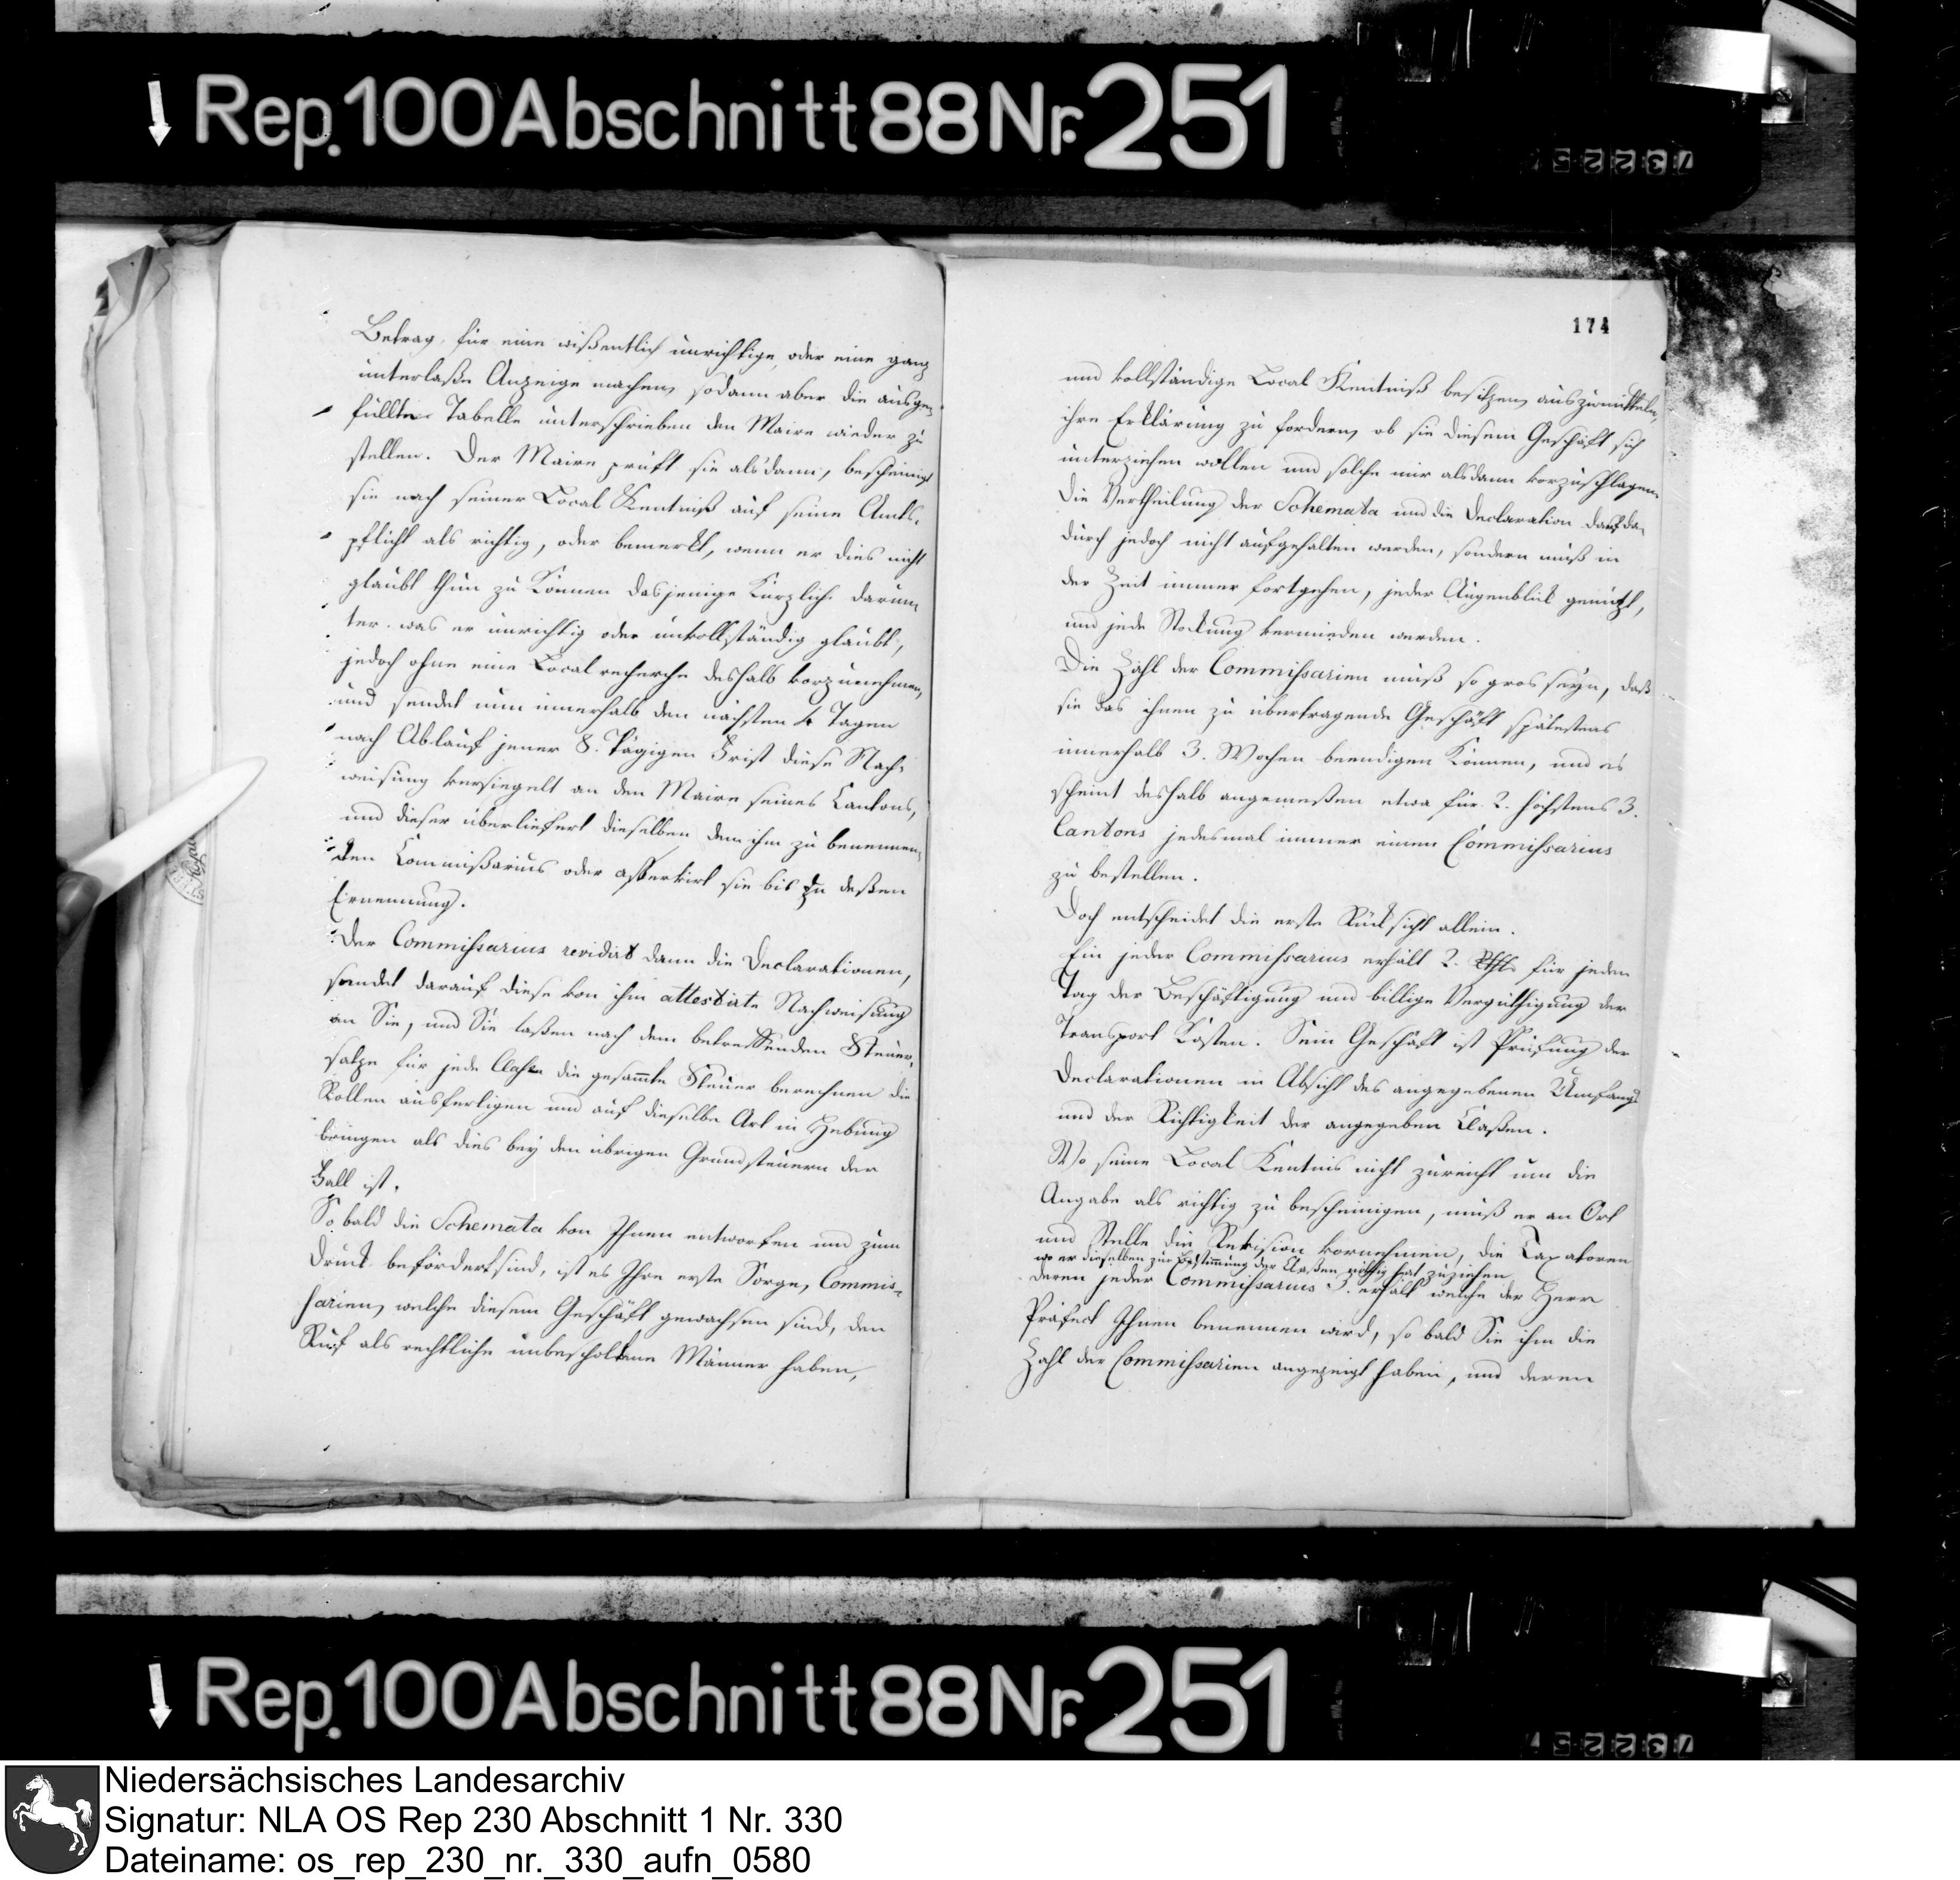 Rep. 100 Abschnitt 88 Nr. 251
73225
Betrag, für eine wißentlich unrichtige, oder eine ganz
unterlaße Anzeige machen, sodann aber die ausge-
füllte Tabelle unterschrieben den Maire wieder zu
stellen. Der Maire prüft sie alsdann, bescheinigt
sie nach seiner Local Kentniß auf seine Amts-
pflicht als richtig, oder bemerkt, wenn er dies nicht
glaubt thun zu können dasjenige kürzlich darun-
ter was er unrichtig oder unvollständig glaubt,
jedoch ohne eine Local recherche deshalb vorzunehmen,
und sendet nun innerhalb den nächsten 4 Tagen
nach Ablauf jener 8. Tägigen Frist diese Nach-
weisung versiegelt an den Maire seines Cantons,
und dieser überliefert dieselben dem ihm zu benennen-
den Commißarius oder asservirt sie bis zu deßen
Ernennung.
Der Commissarius revidirt dann die Declarationen,
sendet darauf diese von ihm attestirte Nachweisung
an Sie, und Sie laßen nach dem betreffenden Steuer-
satze für jede Classe die gesammte Steuer berechnen die
Rollen ausfertigen und auf dieselbe Art in Hebung
bringen als dies bey den übrigen Grundsteuern der
Fall ist.
So bald die Schemata von Ihnen entworfen und zum
Druck befördert sind, ist es Ihre erste Sorge, Commis-
sarien, welche diesem Geschäft gewachsen sind, den
Ruf als rechtliche unbescholtene Männer haben,
174
und vollständige Local Kentniß besitzen auszumitteln,
ihre Erklärung zu fordern, ob sie diesem Geschäft sich
unterziehen wollen und solche mir alsdann vorzuschlagen.
Die Vertheilung der Schemata und die Declaration darf da-
durch jedoch nicht aufgehalten werden, sondern muß in
der Zeit immer fortgehen, jeder Augenblick genützt,
und jede Stockung vermieden werden.
Die Zahl der Commissarien muß so gros seyn, daß
sie das ihnen zu übertragende Geschäft spätestens
innerhalb 3. Wochen beendigen können, und es
scheint deshalb angemeßen etwa für 2. höchstens 3.
Cantons jedesmal immer einen Commissarius
zu bestellen.
Doch entscheidet die erste Rücksicht allein.
Ein jeder Commissarius erhält 2. Rthl. für jeden
Tag der Beschäftigung und billige Vergüthigung der
Transport Kosten. Sein Geschäft ist Prüfung der
Declarationen in Absicht des angegebenen Umfangs
und der Richtigkeit der angegeben Claßen.
Wo seine Local Kentnis nicht zureicht um die
Angabe als richtig zu bescheinigen, muß er an Ort
und Stelle die Revision vornehmen, die Taxatoren
wo er dieselben zur Bestimmung der Claßen nöthig hat zuziehen
deren jeder Commissarius 3. erhält welche der Herr
Präfect Ihnen benennen wird, so bald Sie ihm die
Zahl der Commissarien angezeigt haben, und deren
Rep. 100 Abschnitt 88 Nr. 251
73225
Niedersächsisches Landesarchiv
Signatur: NLA OS Rep 230 Abschnitt 1 Nr. 330
Dateiname: os_rep_230_nr._330_aufn_0580